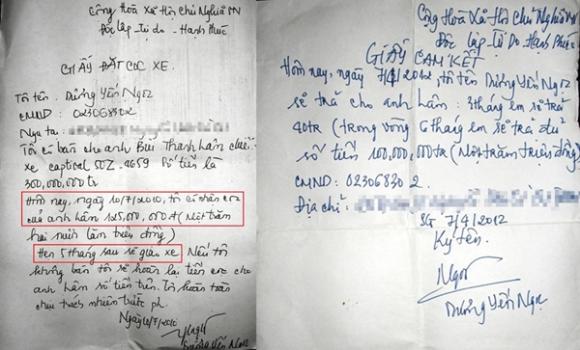 Cộng Hoà Xã Hội Chủ Nghĩa VN
Độc lập - Tự do - Hạnh Phúc
GIẤY ĐẶT CỌC XE
Tôi tên : Dương Yến Ngọc
CMND : 023068302
Tôi có bán cho anh Bùi Thanh Hân chiếc
xe captical 50Z. 4659 số tiền là
360,000,000tr
Hôm nay, ngày 10/7/2010, tôi có nhận cọc
của anh hân 125,000,000tr (Một trăm
hai mươi lăm triệu đồng)
Hẹn 5 tháng sau sẽ giao xe. Nếu tôi
không bán tôi sẽ hoàn lại tiền cọc cho
anh hân số tiền trên. Tôi hoàn toàn
chịu trách nhiệm trước pl.
Ngày 10/7/2010
Dương Yến Ngọc
Cộng Hoà Xã Hội Chủ Nghĩa VN
Độc lập Tự do Hạnh Phúc
GIẤY CAM KẾT
Hôm nay, ngày 7/4/2012 tôi tên Dương Yến Ngọc
sẽ trả cho anh hân : 3 tháng em sẽ trả
40tr (trong vòng 6 tháng em sẽ trả đủ
số tiền 100,000,000tr (Một trăm triệu đồng)
CMND: 023068302
Địa chỉ :
SG 7/4/2012
Ký tên.
Ngọc
Dương Yến Ngọc